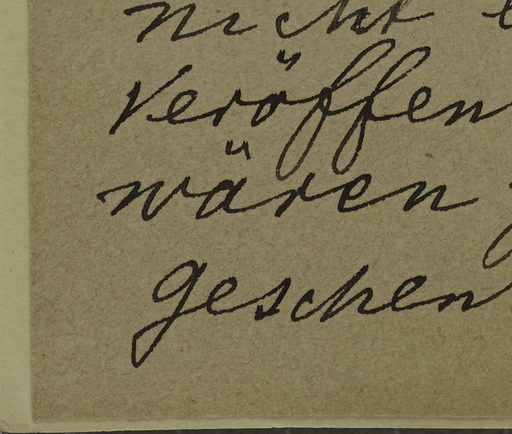 nicht
Veröffen
wären
geschen